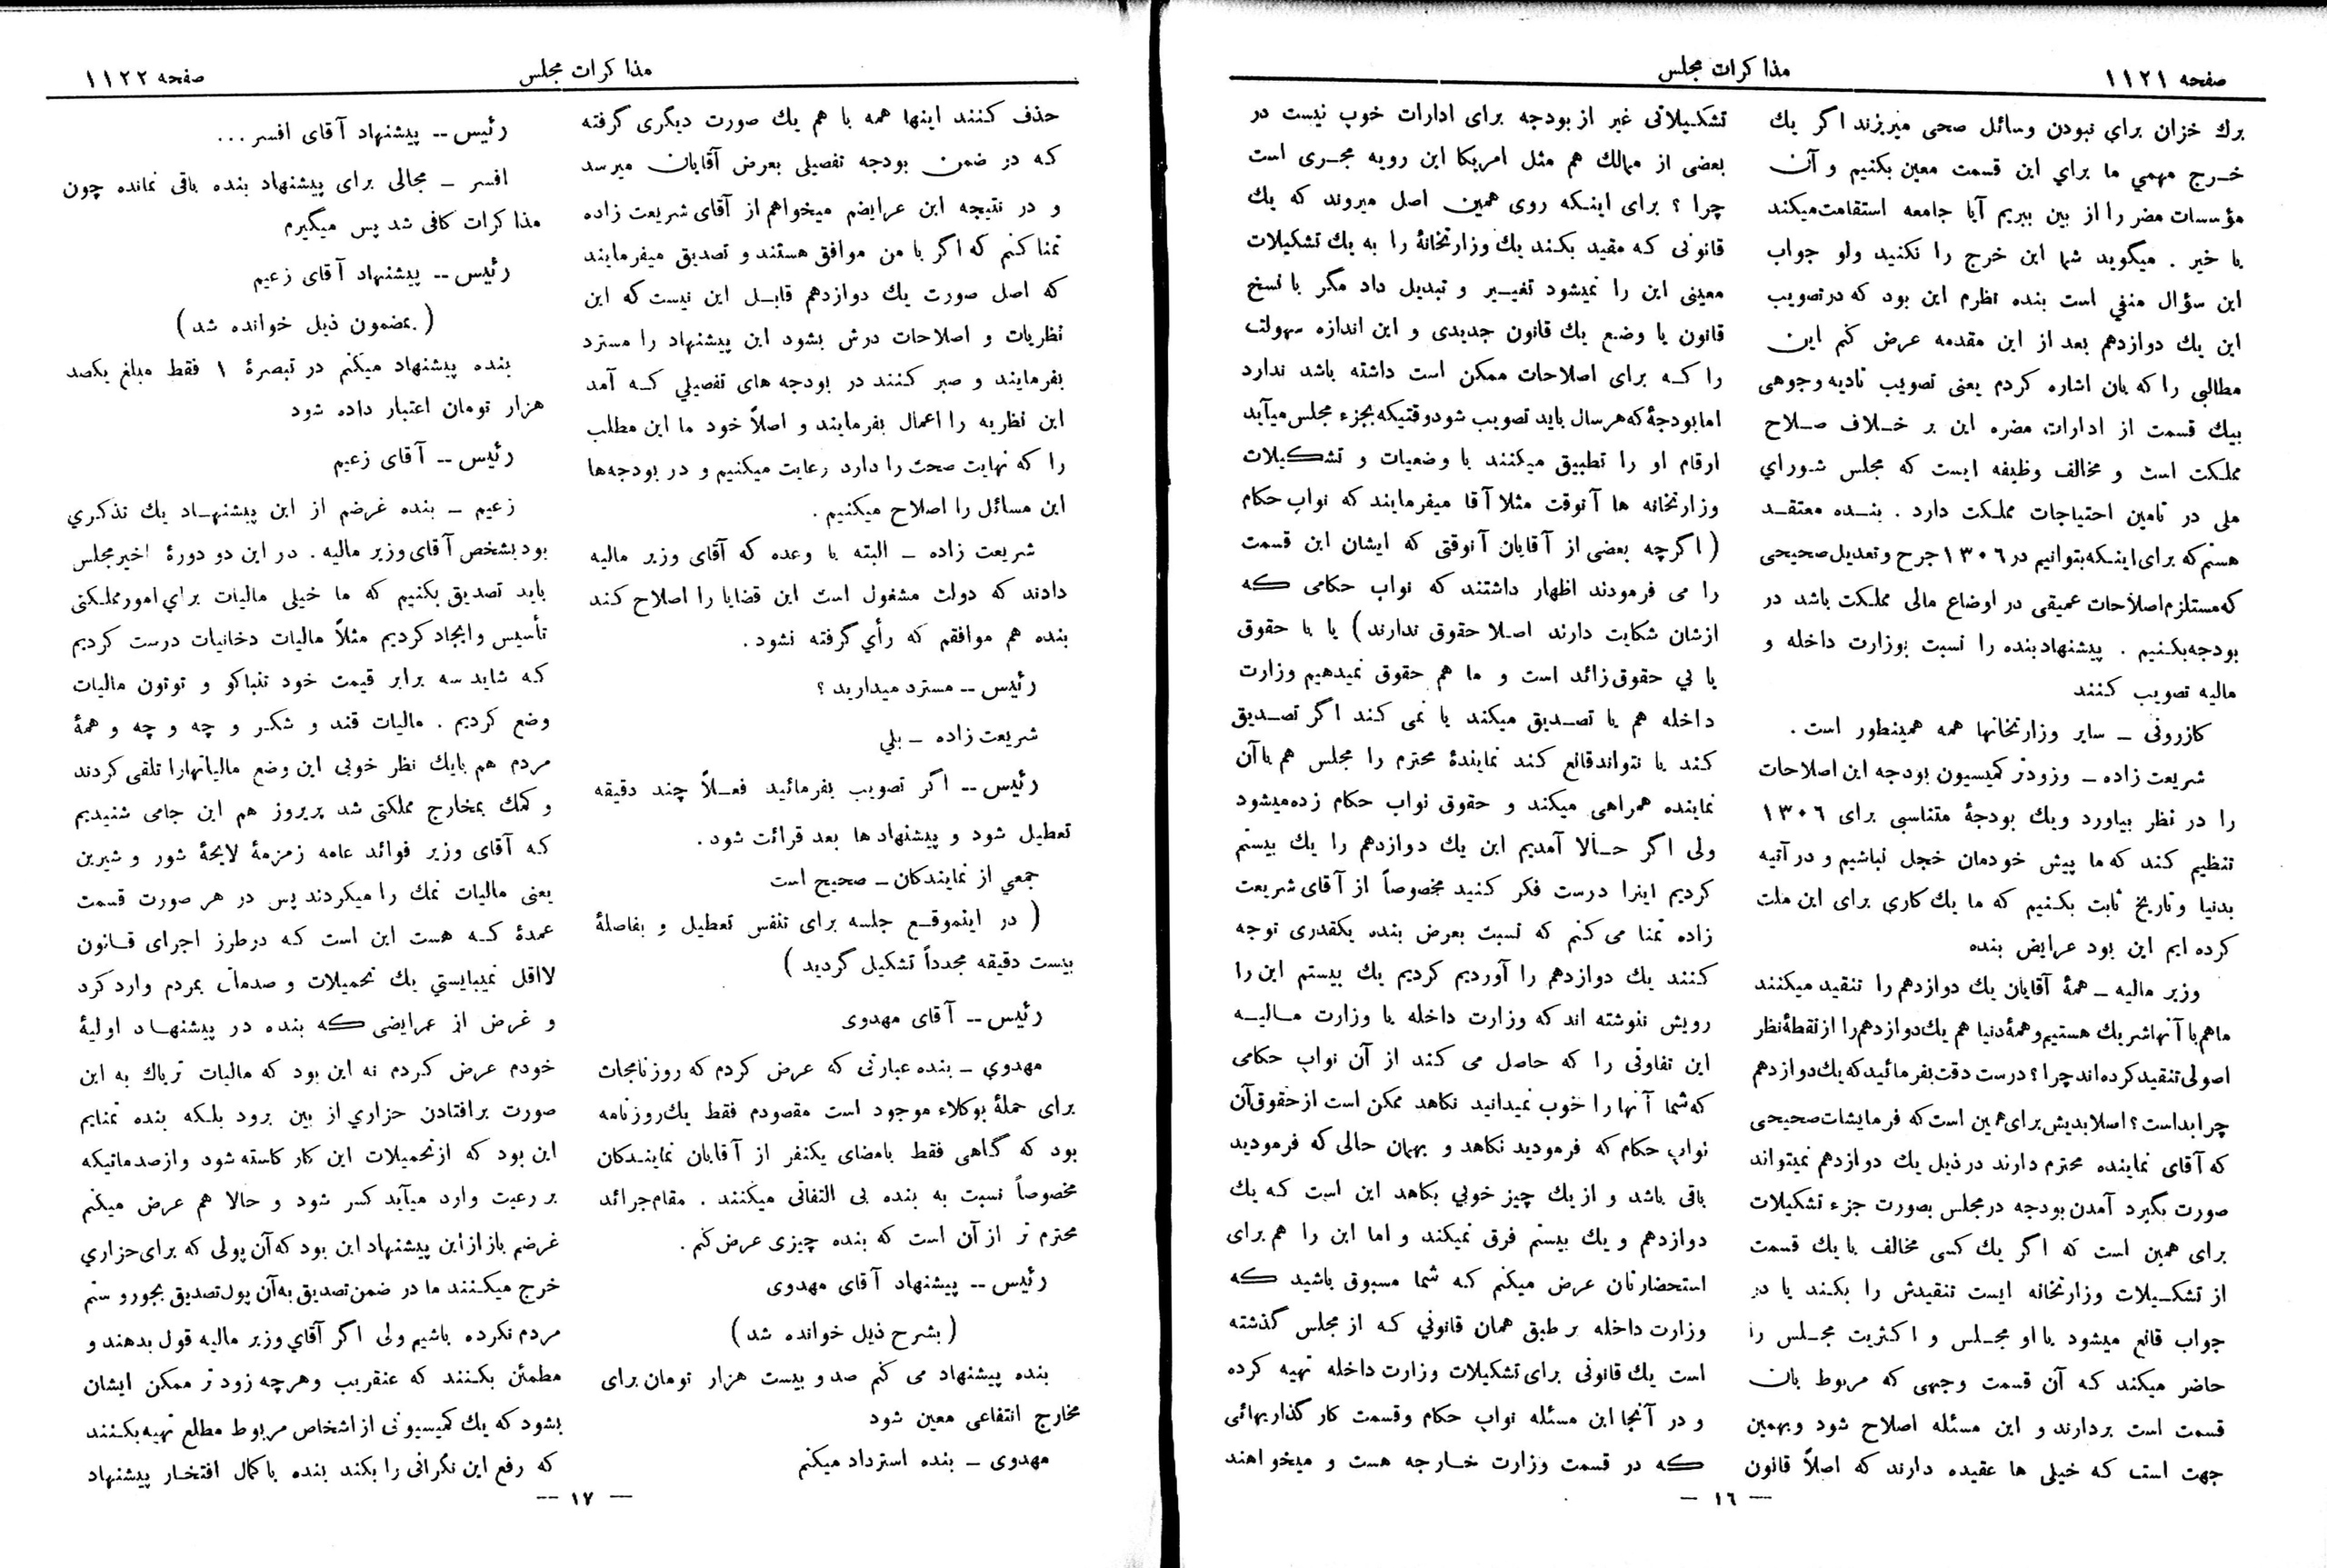 صفحه ۱۱۲۱
مذاکرات مجلس
برك خزان براي نبودن وسائل صحی میریزند اگر یك
خـرج مهمي ما براي این قسمت معین بکنیم و آن
مؤسسات مضر را از بین ببریم آیا جامعه استقامت میکند
یا خیر . میگوید شما این خرج را نکنید ولو جواب
این سؤال منفي است بنده نظرم این بود که در تصویب
این یك دوازدهم بعد از این مقدمه عرض کنم این
مطالبی را که بان اشاره کردم یعنی تصویب تادیه وجوهی
بیك قسمت از ادارات مضره این بر خـلاف صـلاح
مملکت است و مخالف وظیفه ایست که مجلس شوراي
ملی در تامین احتیاجات مملکت دارد . بنـده معتقـد
هستم که برای اینکه بتوانیم در ۱۳۰۶ جرح و تعدیل صحیحی
که مستلزم اصلاحات عمیقی در اوضاع مالی مملکت باشد در
بودجه بکنیم . پیشنهاد بنده را نسبت بوزارت داخله و
مالیه تصویب کنند
کازرونی ـ سایر وزارتخانها همه همینطور است .
شریعت زاده ـ وزودتر کمیسیون بودجه این اصلاحات
را در نظر بیاورد ویك بودجۀ متناسبی برای ۱۳۰۶
تنظیم کند که ما پیش خودمان خجل نباشیم و در آتیه
بدنیا و تاریخ ثابت بکنیم که ما یك کاری برای این ملت
کرده ایم این بود عرایض بنده
وزیر مالیه ـ همۀ آقایان یك دوازدهم را تنقید میکنند
ماهم با آنها شریك هستیم و همۀ دنیا هم یك دوازدهم را از نقطۀ نظر
اصولی تنقید کرده اند چرا ؟ درست دقت بفرمائید که یك دوازدهم
چرا بد است ؟ اصلا بدیش برای همین است که فرمایشات صحیحی
که آقای نماینده محترم دارند در ذیل یك دوازدهم نمیتواند
صورت بگیرد آمدن بودجه در مجلس بصورت جزء تشکیلات
برای همین است که اگر یك کسی مخالف با یك قسمت
از تشکـیلات وزارتخانه ایست تنقیدش را بکند یا در
جواب قانع میشود یا او مجـلس و اکثریت مجـلس را
حاضر میکند که آن قسمت وجهی که مربوط بان
قسمت است بردارند و این مسئله اصلاح شود وبهمین
جهت است که خیلی ها عقیده دارند که اصلاً قانون
تشکیلاتی غیر از بودجه برای ادارات خوب نیست در
بعضی از ممالك هم مثل امریکا این رویه مجـری است
چرا ؟ برای اینکه روی همین اصل میروند که یك
قانونی که مقید بکند یك وزارتخانۀ را به یك تشکیلات
معینی این را نمیشود تغیـیر و تبدیل داد مگر با نسخ
قانون یا وضع یك قانون جدیدی و این اندازه سهولت
را کـه برای اصلاحات ممکن است داشته باشد ندارد
اما بودجۀ که هر سال باید تصویب شود وقتیکه بجزء مجلس میآید
ارقام او را تطبیق میکنند با وضعیات و تشکیلات
وزارتخانه ها آنوقت مثلا آقا میفرمایند که نواب حکام
( اگرچه بعضی از آقایان آنوقتی که ایشان این قسمت
را می فرمودند اظهار داشتند که نواب حکامی که
ازشان شکایت دارند اصلا حقوق ندارند ) یا با حقوق
یا بي حقوق زائد است و ما هم حقوق نمیدهیم وزارت
داخله هم یا تصـدیق میکند یا نمی کند اگر تصـدیق
کند یا نتواند قانع کند نمایندۀ محترم را مجلس هم با آن
نماینده همراهی میکند و حقوق نواب حکام زده میشود
ولی اگر حـالا آمدیم این یك دوازدهم را یك بیستم
کردیم اینرا درست فکر کنید مخصوصاً از آقای شریعت
زاده تمنا می کنم که نسبت بعرض بنده یکقدری توجه
کنند یك دوازدهم را آوردیم کردیم یك بیستم این را
رویش ننوشته اند که وزارت داخله یا وزارت مـالیـه
این تفاوتی را که حاصل می کند از آن نواب حکامی
که شما آنها را خوب نمیدانید نکاهد ممکن است از حقوق آن
نواب حکام که فرمودید نکاهد و بهمان حالی که فرمودید
باقی باشد و از یك چیز خوبي بکاهد این است که یك
دوازدهم و یك بیستم فرق نمیکند و اما این را هم برای
استحضارتان عرض میکنم که شما مسبوق باشید که
وزارت داخله بر طبق همان قانوني که از مجلس گذشته
است یك قانونی برای تشکیلات وزارت داخله تهیه کرده
و در آنجا این مسئله نواب حکام و قسمت کار گذاریهائی
که در قسمت وزارت خـارجه هست و میخواهند
— ۱۶ —
صفحه ۱۱۲۲
مذاکرات مجلس
حذف کنند اینها همه با هم یك صورت دیگری گرفته
که در ضمن بودجه تفصیلی بعرض آقایان میرسد
و در نتیجه این عرایضم میخواهم از آقای شریعت زاده
تمنا کنم که اگر با من موافق هستند و تصدیق میفرمایند
که اصل صورت یك دوازدهم قابـل این نیست که این
نظریات و اصلاحات درش بشود این پیشنهاد را مسترد
بفرمایند و صبر کنند در بودجه های تفصیلي کـه آمد
این نظریه را اعمال بفرمایند و اصلاً خود ما این مطلب
را که نهایت صحت را دارد رعایت میکنیم و در بودجه ها
این مسائل را اصلاح میکنیم .
شریعت زاده ـ البته با وعده که آقای وزیر مالیه
دادند که دولت مشغول است این قضایا را اصلاح کند
بنده هم موافقم که رأي گرفته نشود .
رئیس -- مسترد میدارید ؟
شریعت زاده ـ بلي
رئیس -- اگر تصویب بفرمائید فعـلاً چند دقیقه
تعطیل شود و پیشنهادها بعد قرائت شود .
جمعي از نمایندکان ـ صحیح است
( در اینموقـع جلسه برای تنفس تعطیل و بفاصلۀ
بیست دقیقه مجدداً تشکیل گردید )
رئیس -- آقای مهدوی
مهدوي ـ بنده عبارتی که عرض کردم که روزنامجات
برای حملۀ بوکلاء موجود است مقصودم فقط یك روزنامه
بود که گاهی فقط بامضای یکنفر از آقایان نمایندکان
مخصوصاً نسبت به بنده بی التفاتی میکنند . مقام جرائد
محترم تر از آن است که بنده چیزی عرض کنم .
رئیس -- پیشنهاد آقای مهدوی
( بشرح ذیل خوانده شد )
بنده پیشنهاد می کنم صد و بیست هزار تومان برای
مخارج انتفاعی معین شود
مهدوی ـ بنده استرداد میکنم
رئیس -- پیشنهاد آقای افسر ...
افسر ـ مجالی برای پیشنهاد بنده باقی نمانده چون
مذاکرات کافی شد پس میگیرم
رئیس -- پیشنهاد آقای زعیم
( بمضمون ذیل خوانده شد )
بنده پیشنهاد میکنم در تبصرۀ ۱ فقط مبلغ یکصد
هزار تومان اعتبار داده شود
رئیس -- آقای زعیم
زعیم ـ بنده غرضم از این پیشنهـاد یك تذکري
بود بشخص آقای وزیر مالیه . در این دو دورۀ اخیر مجلس
باید تصدیق بکنیم که ما خیلی مالیات براي امور مملکتی
تأسیس و ایجاد کردیم مثلاً مالیات دخانیات درست کردیم
که شاید سه برابر قیمت خود تنباکو و توتون مالیات
وضع کردیم . مالیات قند و شکر و چه و چه و همۀ
مردم هم بایك نظر خوبی این وضع مالیاتها را تلقی کردند
و کمك بمخارج مملکتی شد پریروز هم این جامی شنیدیم
که آقای وزیر فوائد عامه زمزمۀ لایحۀ شور و شیرین
یعنی مالیات نمك را میکردند پس در هر صورت قسمت
عمدۀ کـه هست این است که در طرز اجرای قـانون
لااقل نمیبایستي یك تحمیلات و صدمات بمردم وارد کرد
و غرض از عرایضی که بنده در پیشنهـاد اولیۀ
خودم عرض کردم نه این بود که مالیات تریاك به این
صورت برافتادن حزاري از بین برود بلکه بنده تمنایم
این بود که از تحمیلات این کار کاسته شود و از صدماتیکه
بر رعیت وارد میآید کسر شود و حالا هم عرض میکنم
غرضم باز از این پیشنهاد این بود که آن پولی که برای حزاري
خرج میکنند ما در ضمن تصدیق به آن پول تصدیق بجور و ستم
مردم نکرده باشیم ولی اگر آقاي وزیر مالیه قول بدهند و
مطمئن بکنند که عنقریب و هرچه زود تر ممکن ایشان
بشود که یك کمیسیونی از اشخاص مربوط مطلع تهیه بکنند
که رفع این نگرانی را بکند بنده با کمال افتخـار پیشنهاد
— ۱۷ —